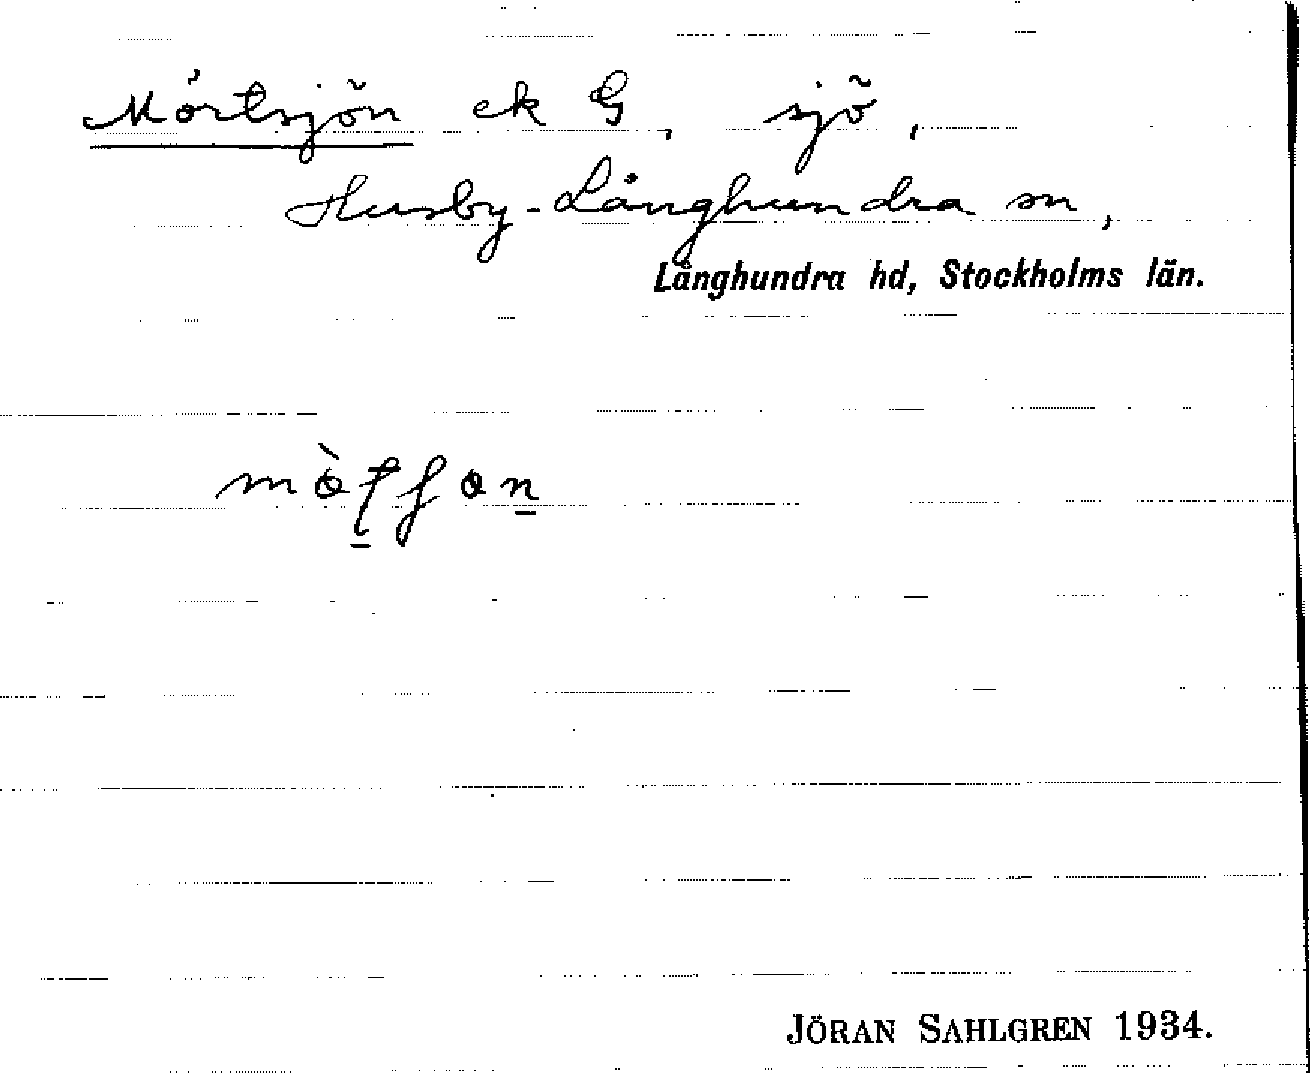 Mörtsjön ek G, sjö,
Husby-Långhundra sn,
Långhundra hd, Stockholms län.
JÖRAN SAHLGREN 1934.